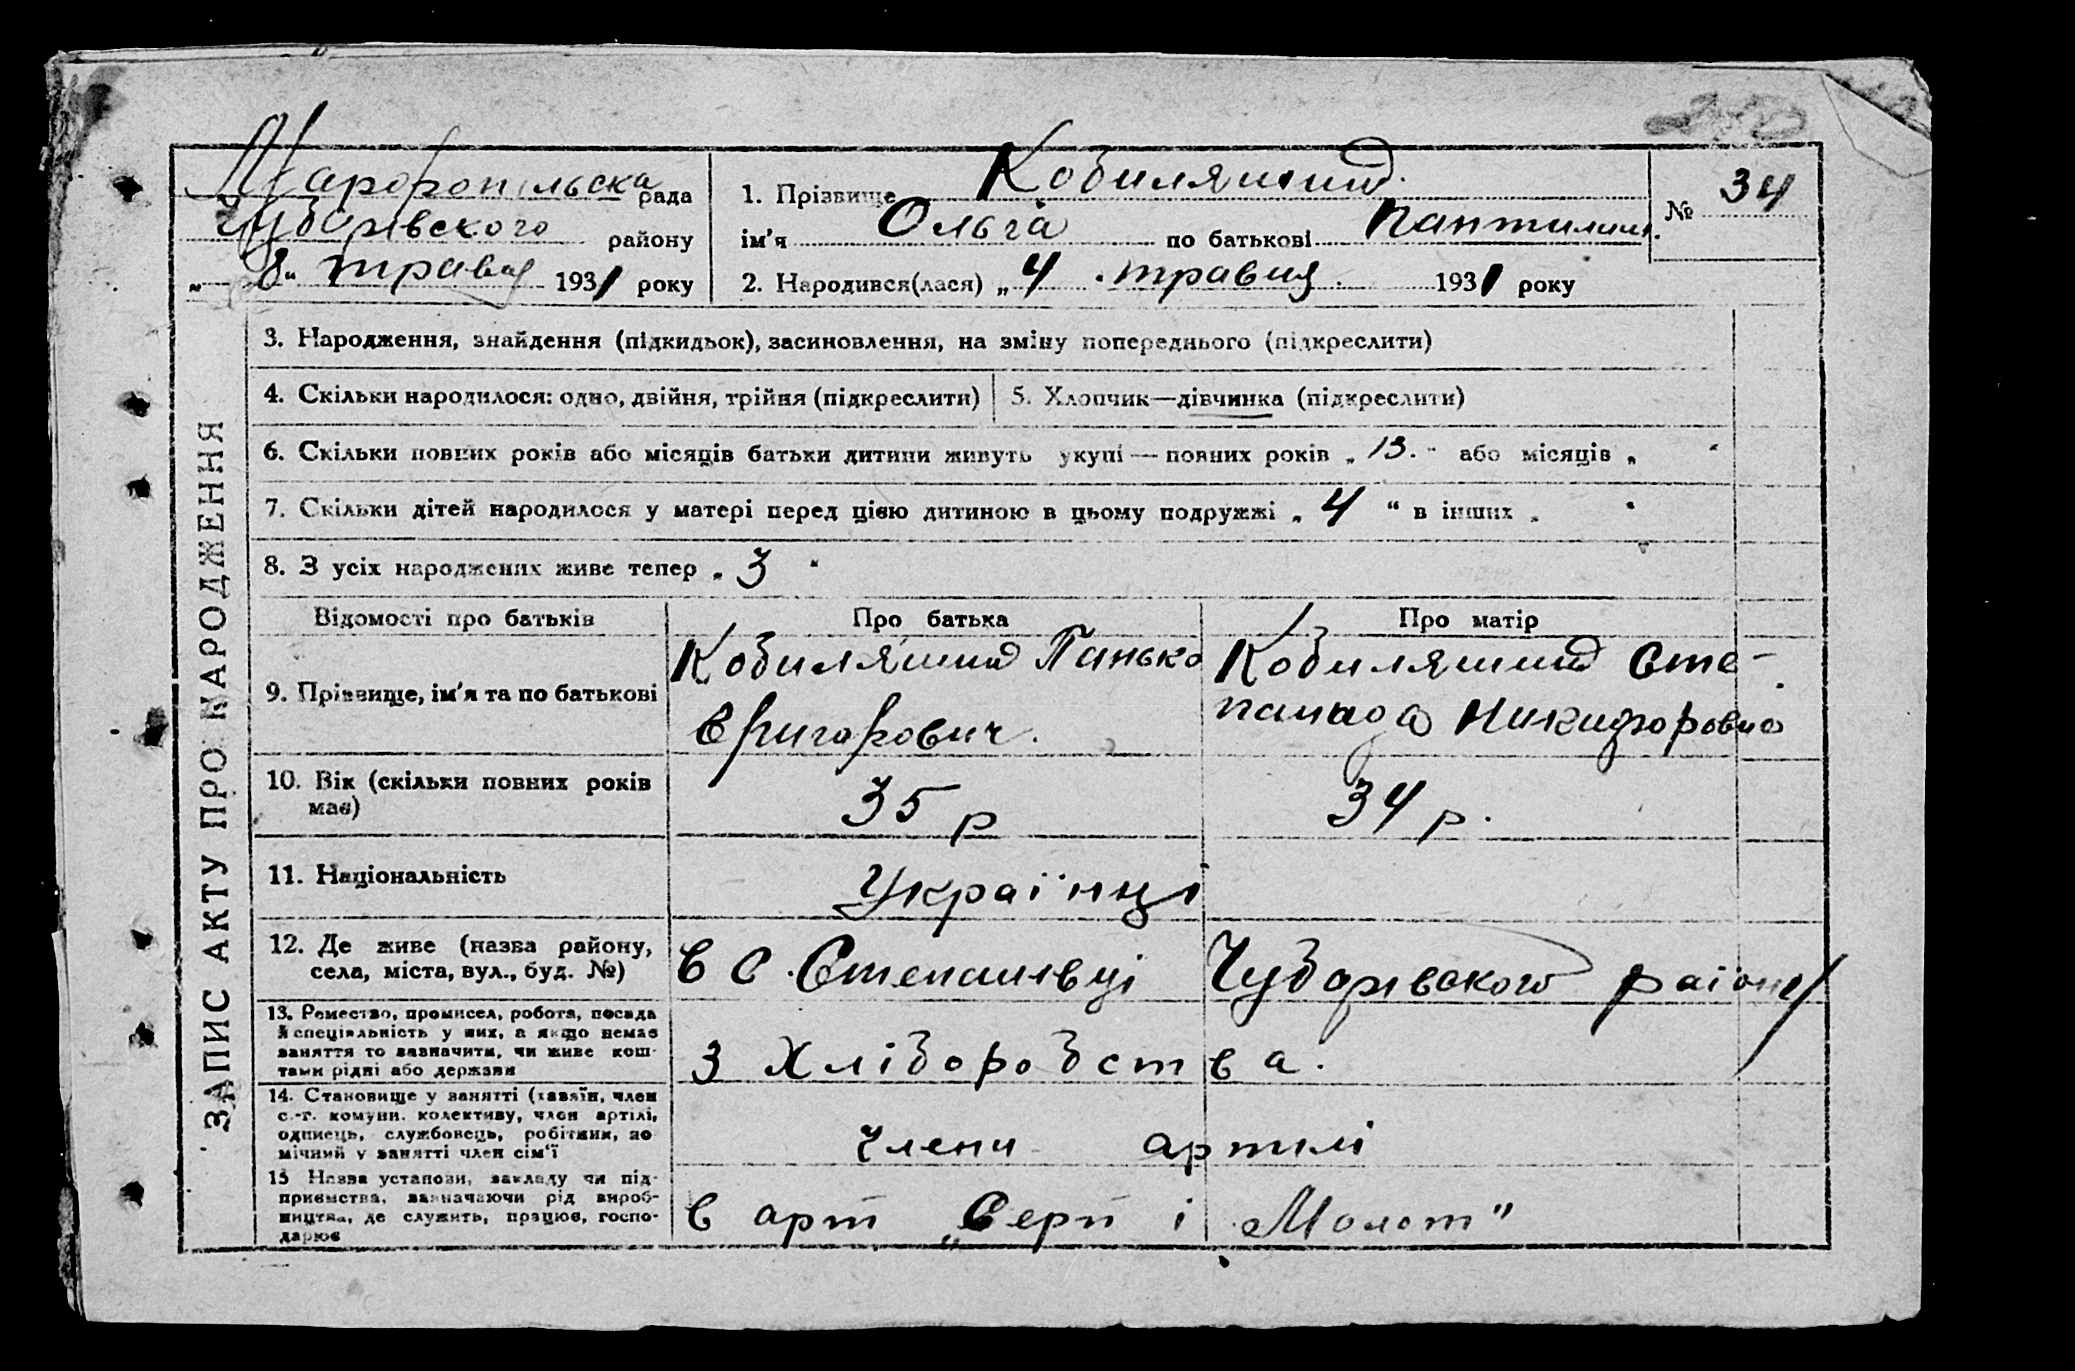 рада
Чубарівского району
„ 8 “ травня 1931 року
1. Прізвище Кобиляшна
ім'я Ольга по батькові
2. Народився(лася) „ 4 . травня . 1931 року
№ 34
ЗАПИС АКТУ ПРО НАРОДЖЕННЯ
3. Народження, знайдення (підкидьок), засиновлення, на зміну попереднього (підкреслити)
4. Скільки народилося: одно, двійня, трійня (підкреслити)
5. Хлопчик—дівчинка (підкреслити)
6. Скільки повних років або місяців батьки дитини живуть укупі — повних років „ 13. “ або місяців „ “
7. Скільки дітей народилося у матері перед цією дитиною в цьому подружжі „ 4 “ в інших „ “
8. З усіх народжених живе тепер „ 3 “
Відомості про батьків
Про батька
Про матір
9. Прізвище, ім'я та по батькові
Панько
Григорович.
Сте-
панида Никифоровна
10. Вік (скільки повних років
має)
35 р
34 р.
11. Національність
Українці
12. Де живе (назва району,
села, міста, вул., буд. №)
в с. Степанівці Чубарівского району
13. Ремество, промисел, робота, посада
й спеціяльність у них, а якщо немає
заняття то зазначити, чи живе кош-
тами рідні або держави
З Хліборобства.
14. Становище у занятті (хазяїн, член
с.-г. комуни, колективу, член артілі,
одинець, службовець, робітник, по
мічний у занятті член сім'ї
Члени артилі
15 Назва установи, закладу чи під-
приємства, зазначаючи рід вироб-
ництва, де служить, працює, госпо-
дарює
в арт „Серп і Молот"